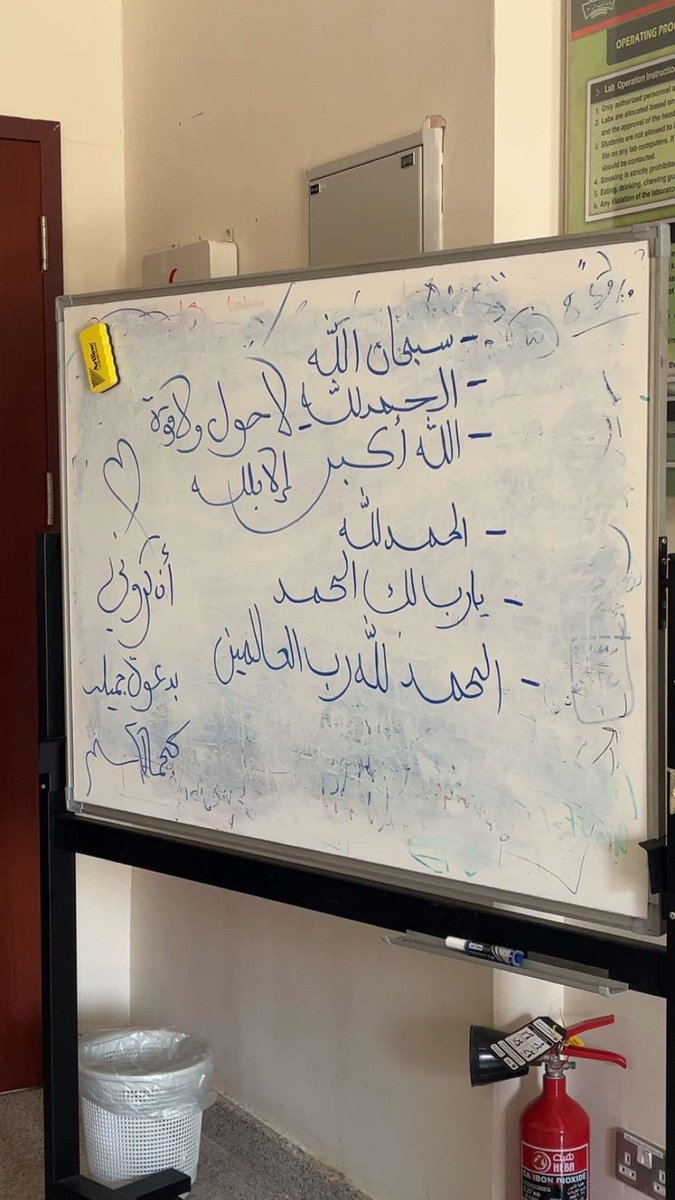 OPERATING PRO
Lab Operation Instruction
1. Only authorized personnel a
2. Labs are allocated based on
and the approval of the head
3. Students are not allowed to
file on any lab computers. If
should be contacted.
4. Smoking is strictly prohibite
5. Eating, drinking, chewing gu
6. Any Violation of the laborat
Artline
- سبحان الله
- الحمدلله
لا حول ولا قوة
- الله أكبر
إلا بالله
- الحمدلله
- يارب لك الحمد
- الحمد لله رب العالمين
أذكروني
بدعوة جميله
كجمالكم
هبة
HEBA
CARBON DIOXIDE